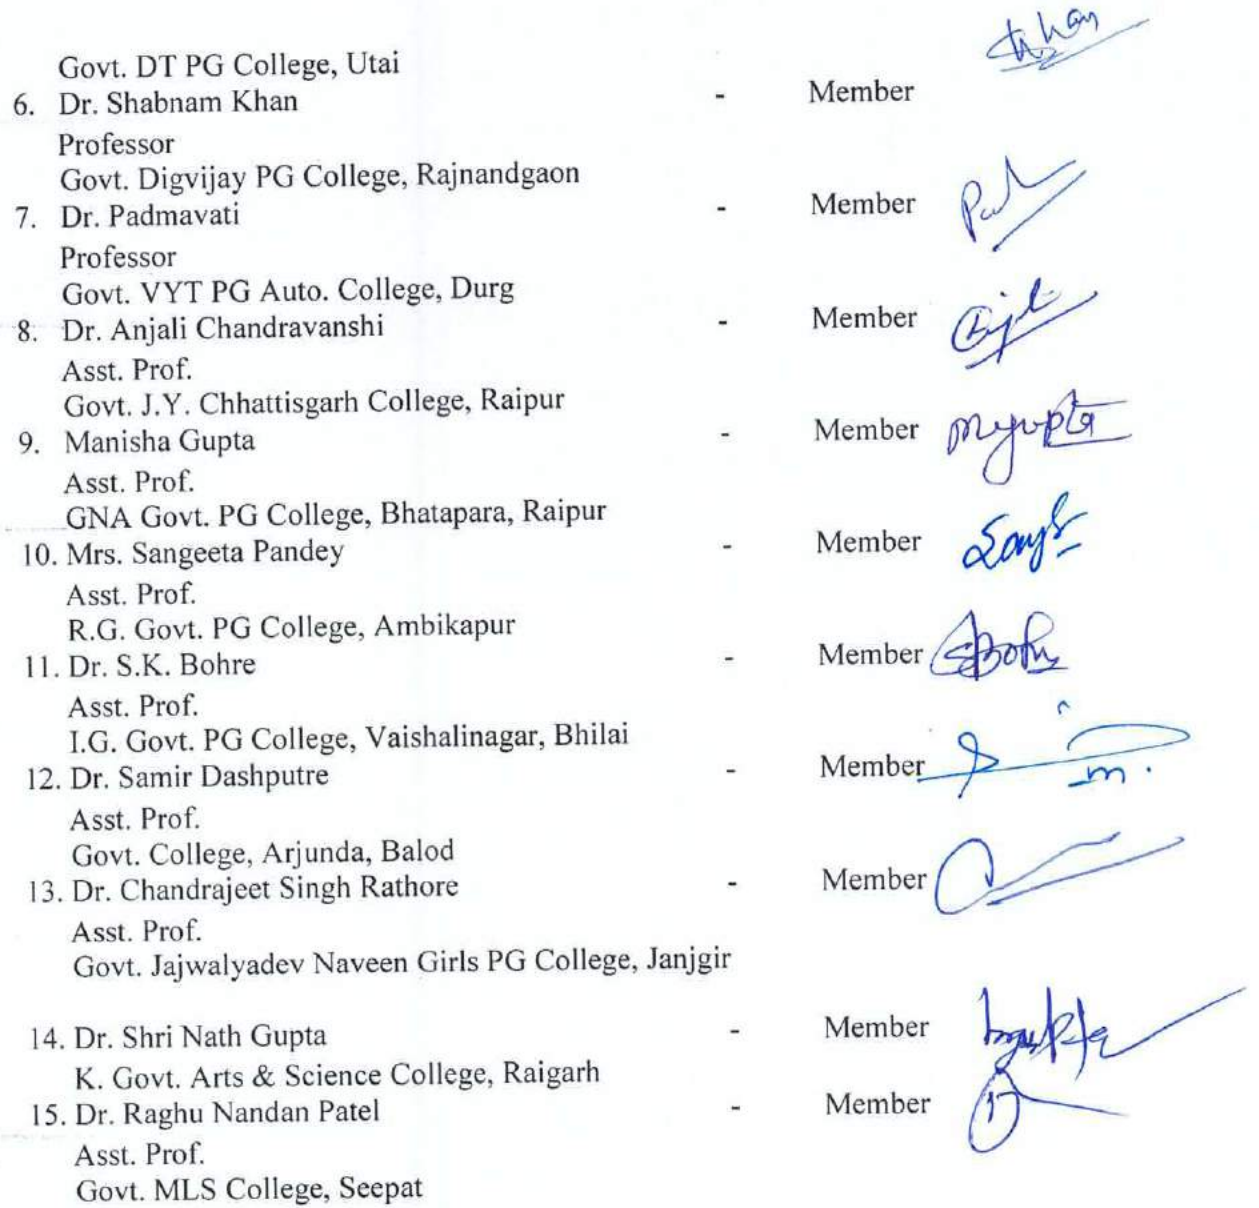 Govt. DT PG College, Utai
6. Dr. Shabnam Khan - Member Khan
Professor
Govt. Digvijay PG College, Rajnandgaon
7. Dr. Padmavati - Member
Professor
Govt. VYT PG Auto. College, Durg
8. Dr. Anjali Chandravanshi - Member
Asst. Prof.
Govt. J.Y. Chhattisgarh College, Raipur
9. Manisha Gupta - Member Mgupta
Asst. Prof.
GNA Govt. PG College, Bhatapara, Raipur
10. Mrs. Sangeeta Pandey - Member
Asst. Prof.
R.G. Govt. PG College, Ambikapur
11. Dr. S.K. Bohre - Member
Asst. Prof.
I.G. Govt. PG College, Vaishalinagar, Bhilai
12. Dr. Samir Dashputre - Member
Asst. Prof.
Govt. College, Arjunda, Balod
13. Dr. Chandrajeet Singh Rathore - Member
Asst. Prof.
Govt. Jajwalyadev Naveen Girls PG College, Janjgir
14. Dr. Shri Nath Gupta - Member
K. Govt. Arts & Science College, Raigarh
15. Dr. Raghu Nandan Patel - Member
Asst. Prof.
Govt. MLS College, Seepat